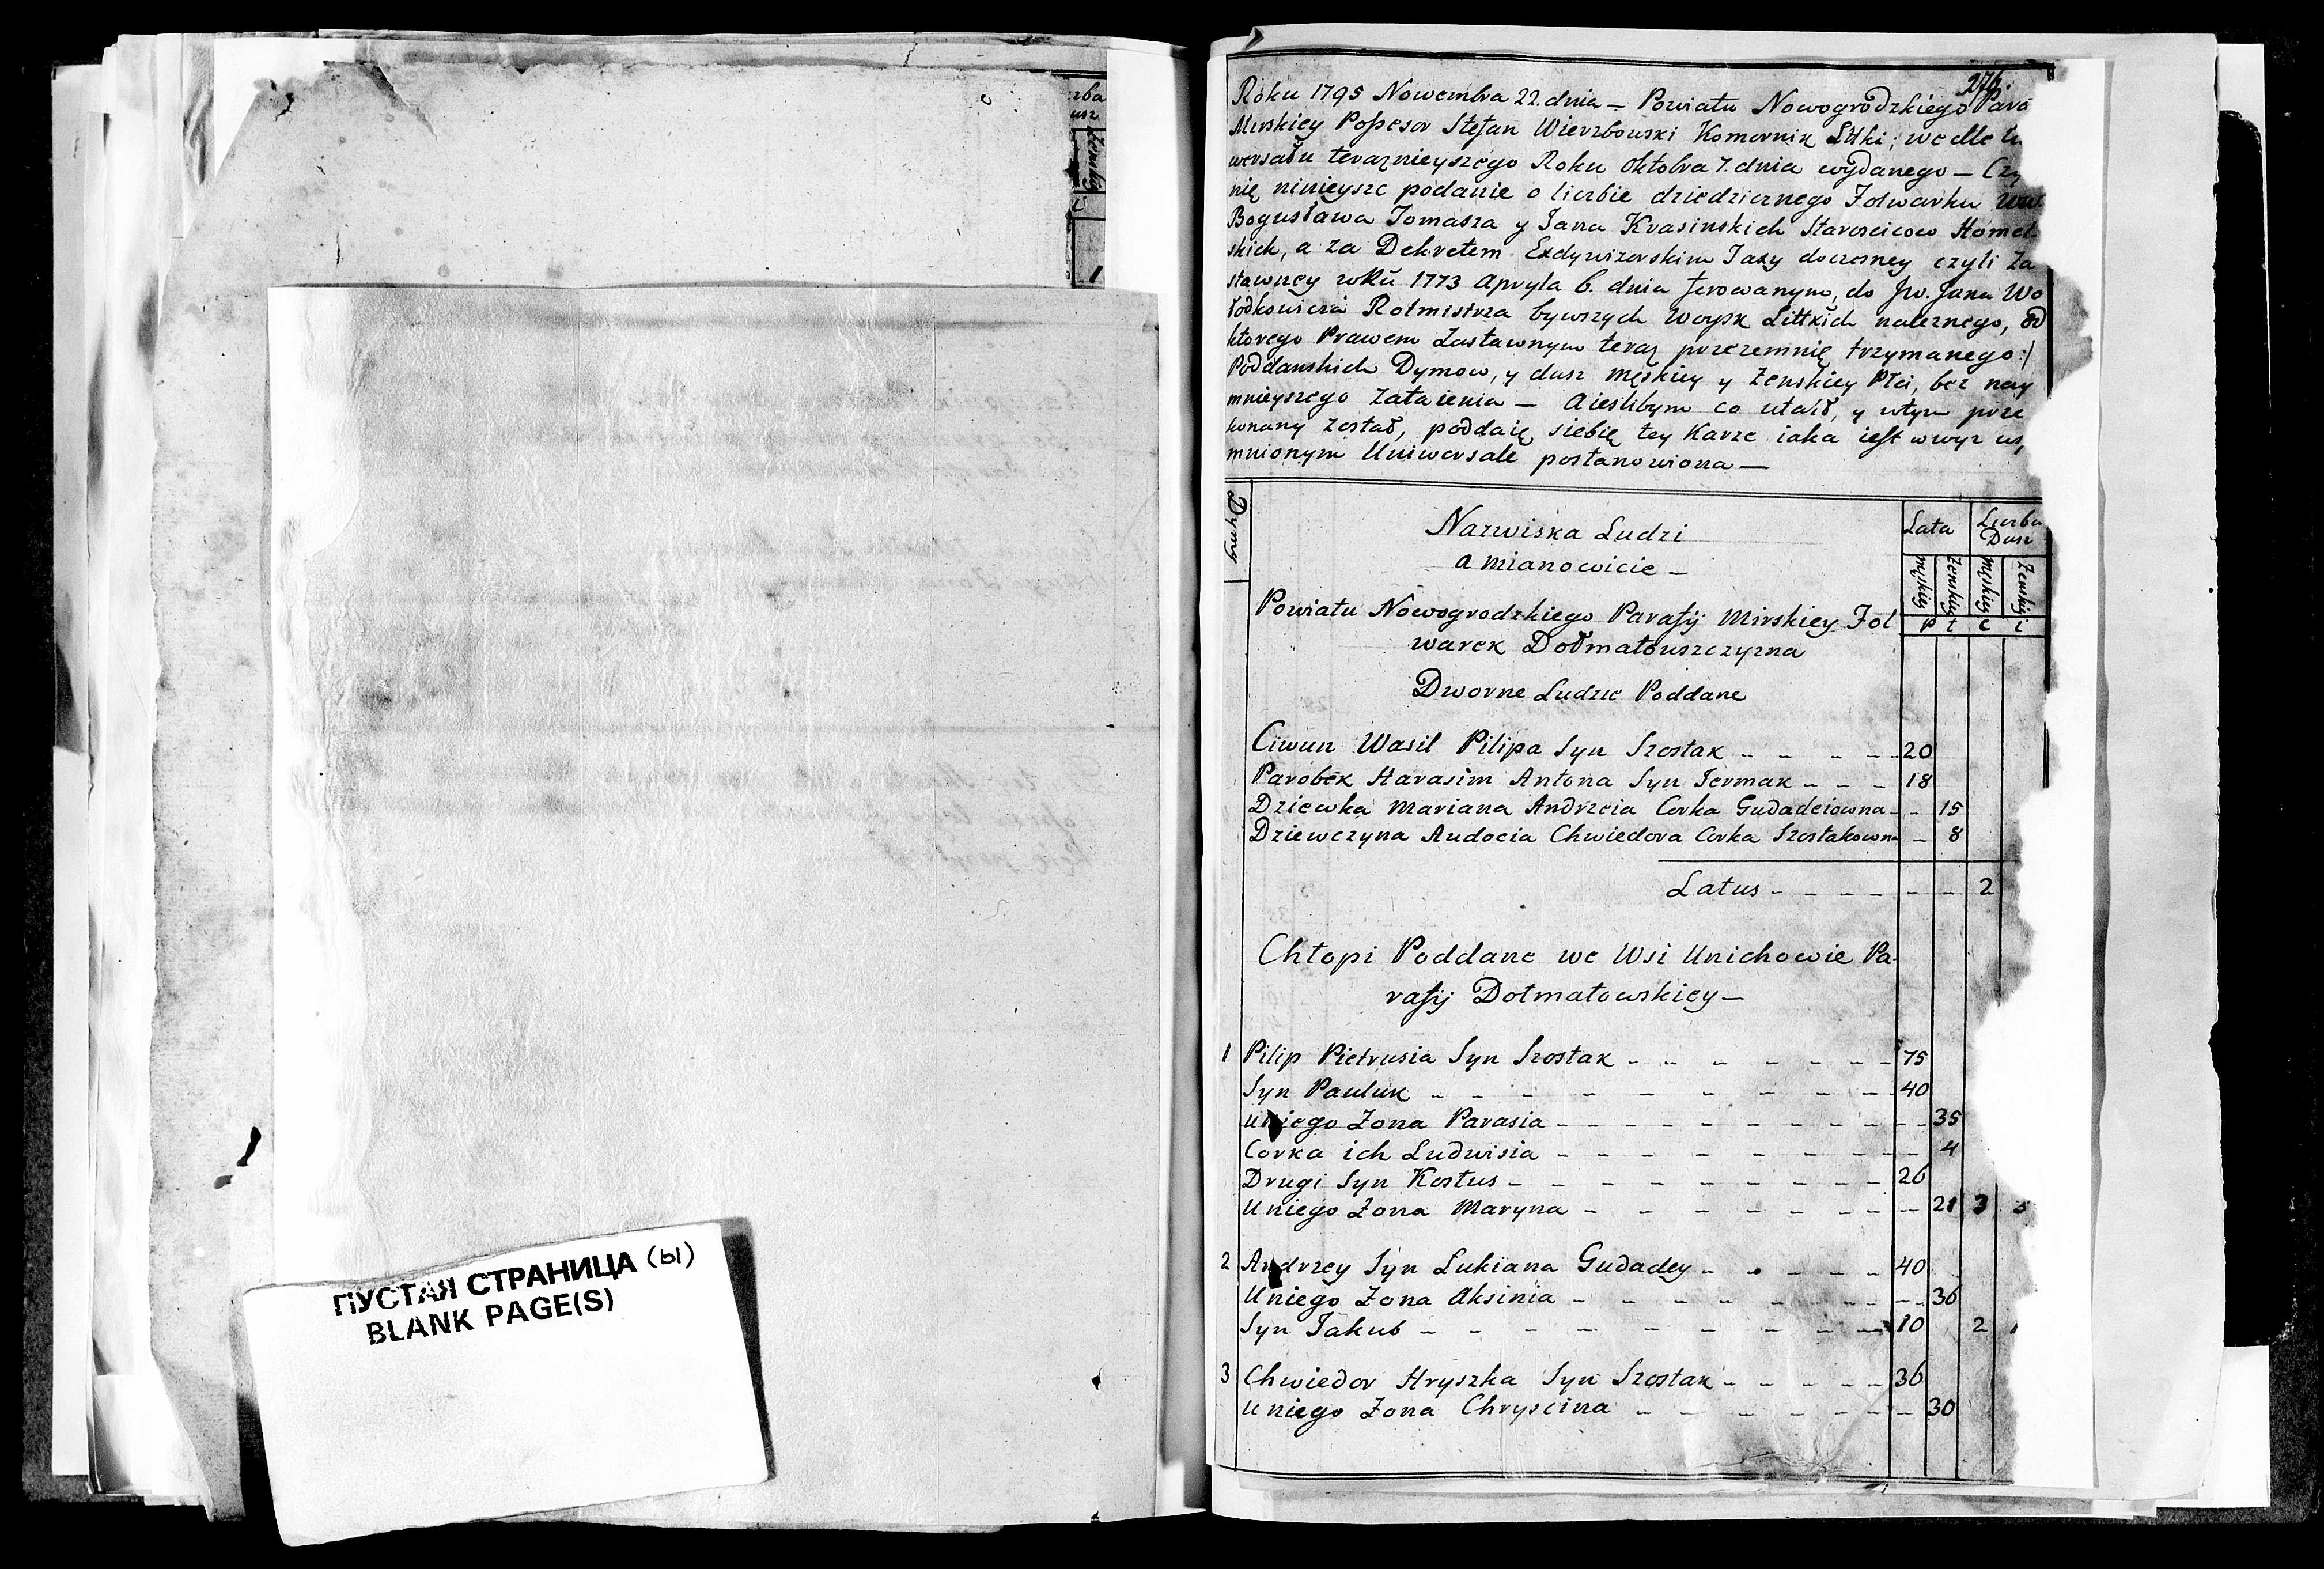 rba
usz
żenskiey
c
1
ПУСТАЯ СТРАНИЦА (Ы)
BLANK PAGE(S)
276.
Roku 1795 Nowembra 22. dnia — Powiatu Nowogrodzkiego Para
Mirskiey Possesor Stefan Wierzbowski Komornik Littki; wedle U
wersału teraznieyszego Roku Oktobra 7. dnia wydanego — Czy
nię ninieysze podanie o liczbie dziedzicznego Folwarku
Bogusława Tomasza y Jana Krasinskich Starościcow Homel
skich, a za Dekretem Exdywizorskim Taxy doczesney czyli Za
stawney roku 1773 Apryla 6. dnia ferowanym, do Jw. Jana Wo
łodkowicza Rotmistrza bywszych Woysk Littkich należnego, od
ktorego Prawem Zastawnym teraz przezemnię trzymanego:/
Poddanskich Dymow, y dusz męskiey y żenskiey Płci, bez nay
mnieyszego zataienia — A ieslibym co utaił, y wtym prze
konany został, poddaię siebię tey karze iaka iest wwyz us
mnionym Uniwersale postanowiona —
Dymy
Nazwiska Ludzi
a mianowicie —
Lata
Liczba
Dusz
męskiey
żenskiey
męskiey
żenskiey
P ł c i
Powiatu Nowogrodzkiego Parafij Mirskiey Fol
warek Dołmatowszczyzna
Dworne Ludzie Poddane
Ciwun Wasil Pilipa Syn Szostak - - - - - 20
Parobek Harasim Antona Syn Jermak - - - 18
Dziewka Mariana Andrzeia Corka Gudadeiowna - - 15
Dziewczyna Audocia Chwiedora Corka Szostakown - 8
Latus - - - - - - - 2
Chłopi Poddane we Wsi Unichowie Pa-
rafij Dołmatowskiey —
1 Pilip Pietrusia Syn Szostak - - - - - - 75
Syn Pauluk - - - - - - - - - 40
Uniego Żona Parasia - - - - - - - - - 35
Corka ich Ludwisia - - - - - - - - 4
Drugi Syn Kostus - - - - - - - - 26
Uniego Żona Maryna - - - - - - - - 21 3
2 Andrzey Syn Łukiana Gudadey - - - - - 40
Uniego Żona Aksinia - - - - - - - - 36
Syn Jakub - - - - - - - - - 10 2 1
3 Chwiedor Hryszka Syn Szostak - - - - - 36
Uniego Żona Chryscina - - - - - - - 30